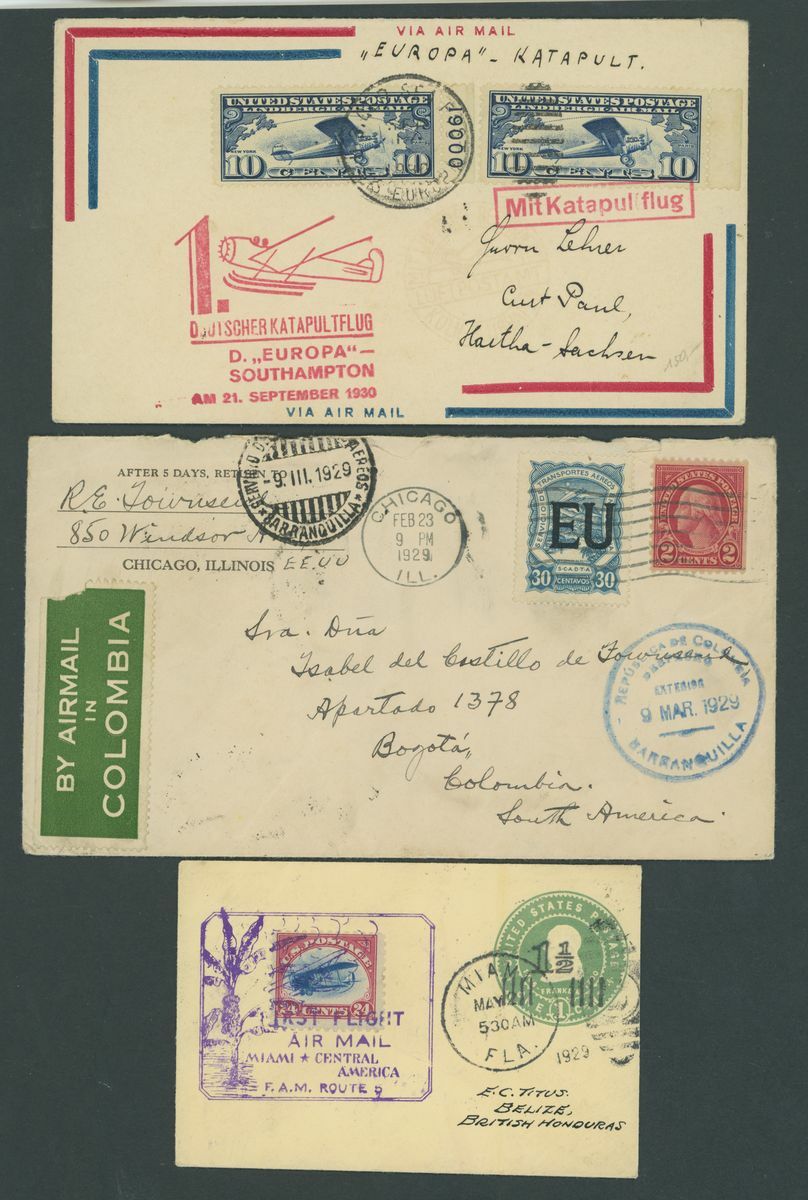 VIA AIR MAIL
„EUROPA" - KATAPULT.
UNITED STATES POSTAGE
LINDBERGH AIR MAIL
NEW YORK
PARIS
10 CENTS 10
UNITED STATES POSTAGE
LINDBERGH AIR MAIL
NEW YORK
10 CENTS 10
Mit Katapultflug
Herrn Lehrer
Curt Paul,
Hartha-Sachsen
150,-
1.
DEUTSCHER KATAPULTFLUG
D. „EUROPA"–
SOUTHAMPTON
AM 21. SEPTEMBER 1930
VIA AIR MAIL
AFTER 5 DAYS, RETURN TO
R.E. Townsend
850 Windsor
CHICAGO, ILLINOIS EE.UU
AEREOS
-9.III.1929
BARRANQUILLA
CHICAGO
FEB 23
9 PM
1929
ILL.
SERVICIO DE TRANSPORTES AEREOS
EU
SCADTA
30 CENTAVOS 30
UNITED STATES POSTAGE
2 CENTS 2
BY AIRMAIL
IN
COLOMBIA
Sra. Dña
Isabel del Castillo de Townsend
Apartado 1378
Bogotá,
Colombia.
South America.
REPÚBLICA DE COLOMBIA
EXTERIOR
9 MAR. 1929
BARRANQUILLA
U.S. POSTAGE
24 CENTS 24
FAST FLIGHT
AIR MAIL
MIAMI ★ CENTRAL
AMERICA
F.A.M. ROUTE 5
UNITED STATES POSTAGE
1 1/2
FRANKLIN
ONE 1 CENT
MIAMI
MAY 21
530 AM
FLA.
1929
E.C. TITUS.
BELIZE,
BRITISH HONDURAS